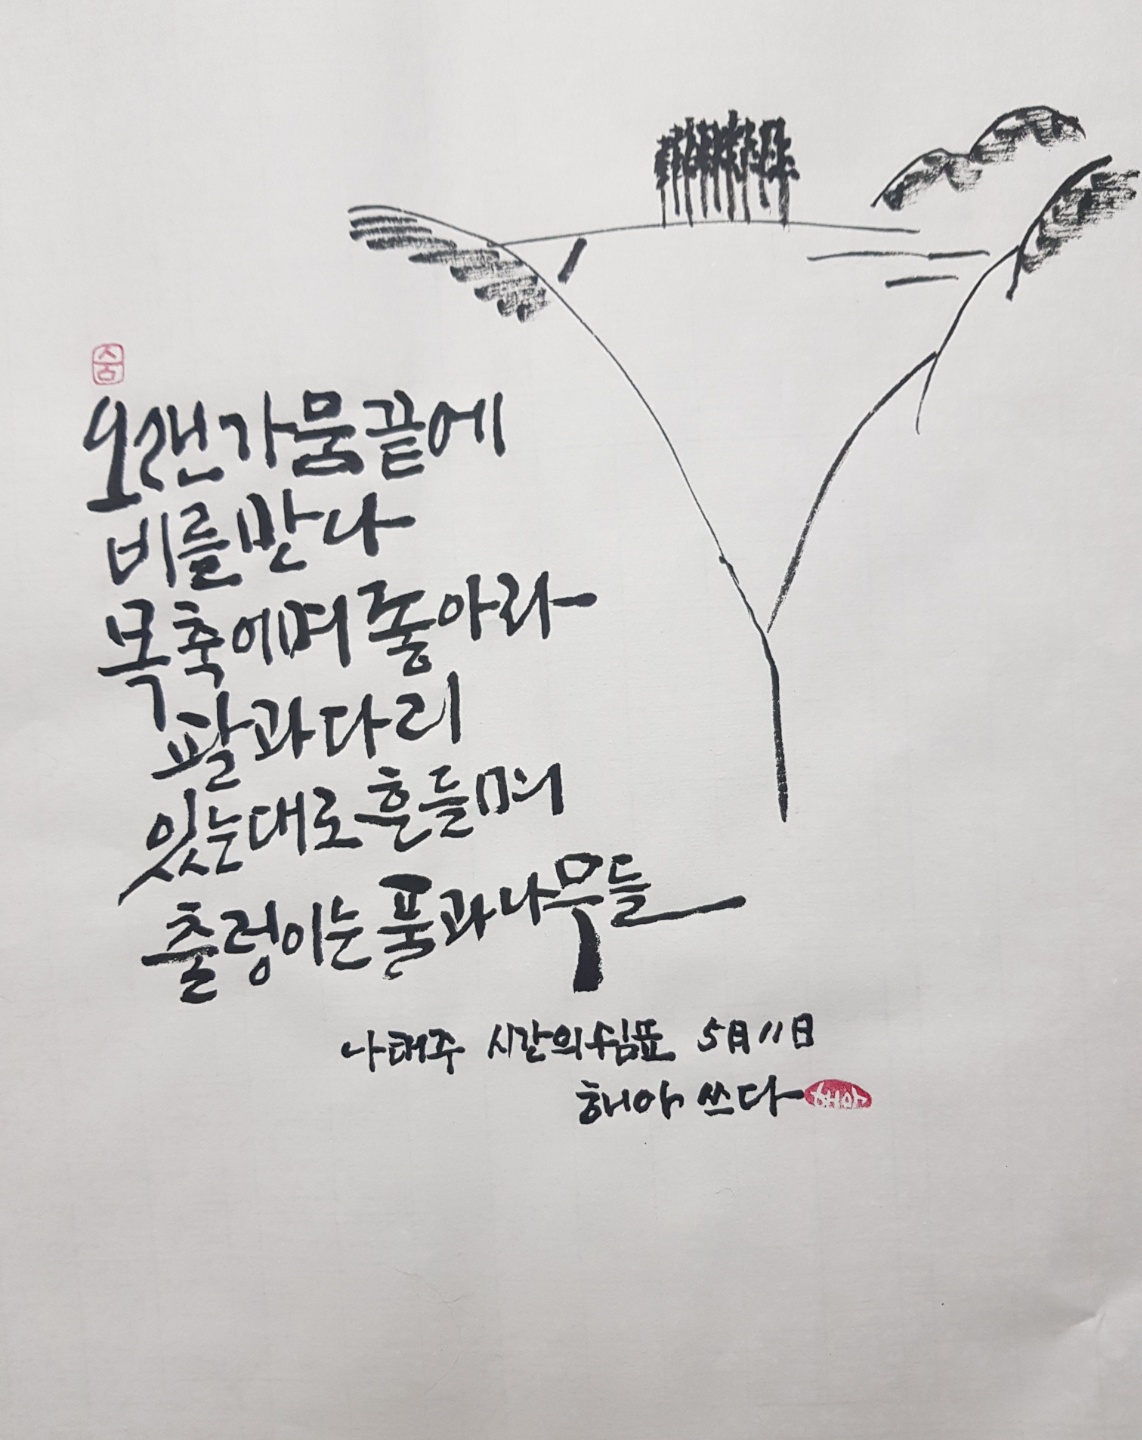 숨
오랜 가뭄 끝에
비를 만나
목축이며 좋아라
팔과 다리
있는대로 흔들며
출렁이는 풀과 나무들
나태주 시간의 쉼표 5月11日
해야 쓰다